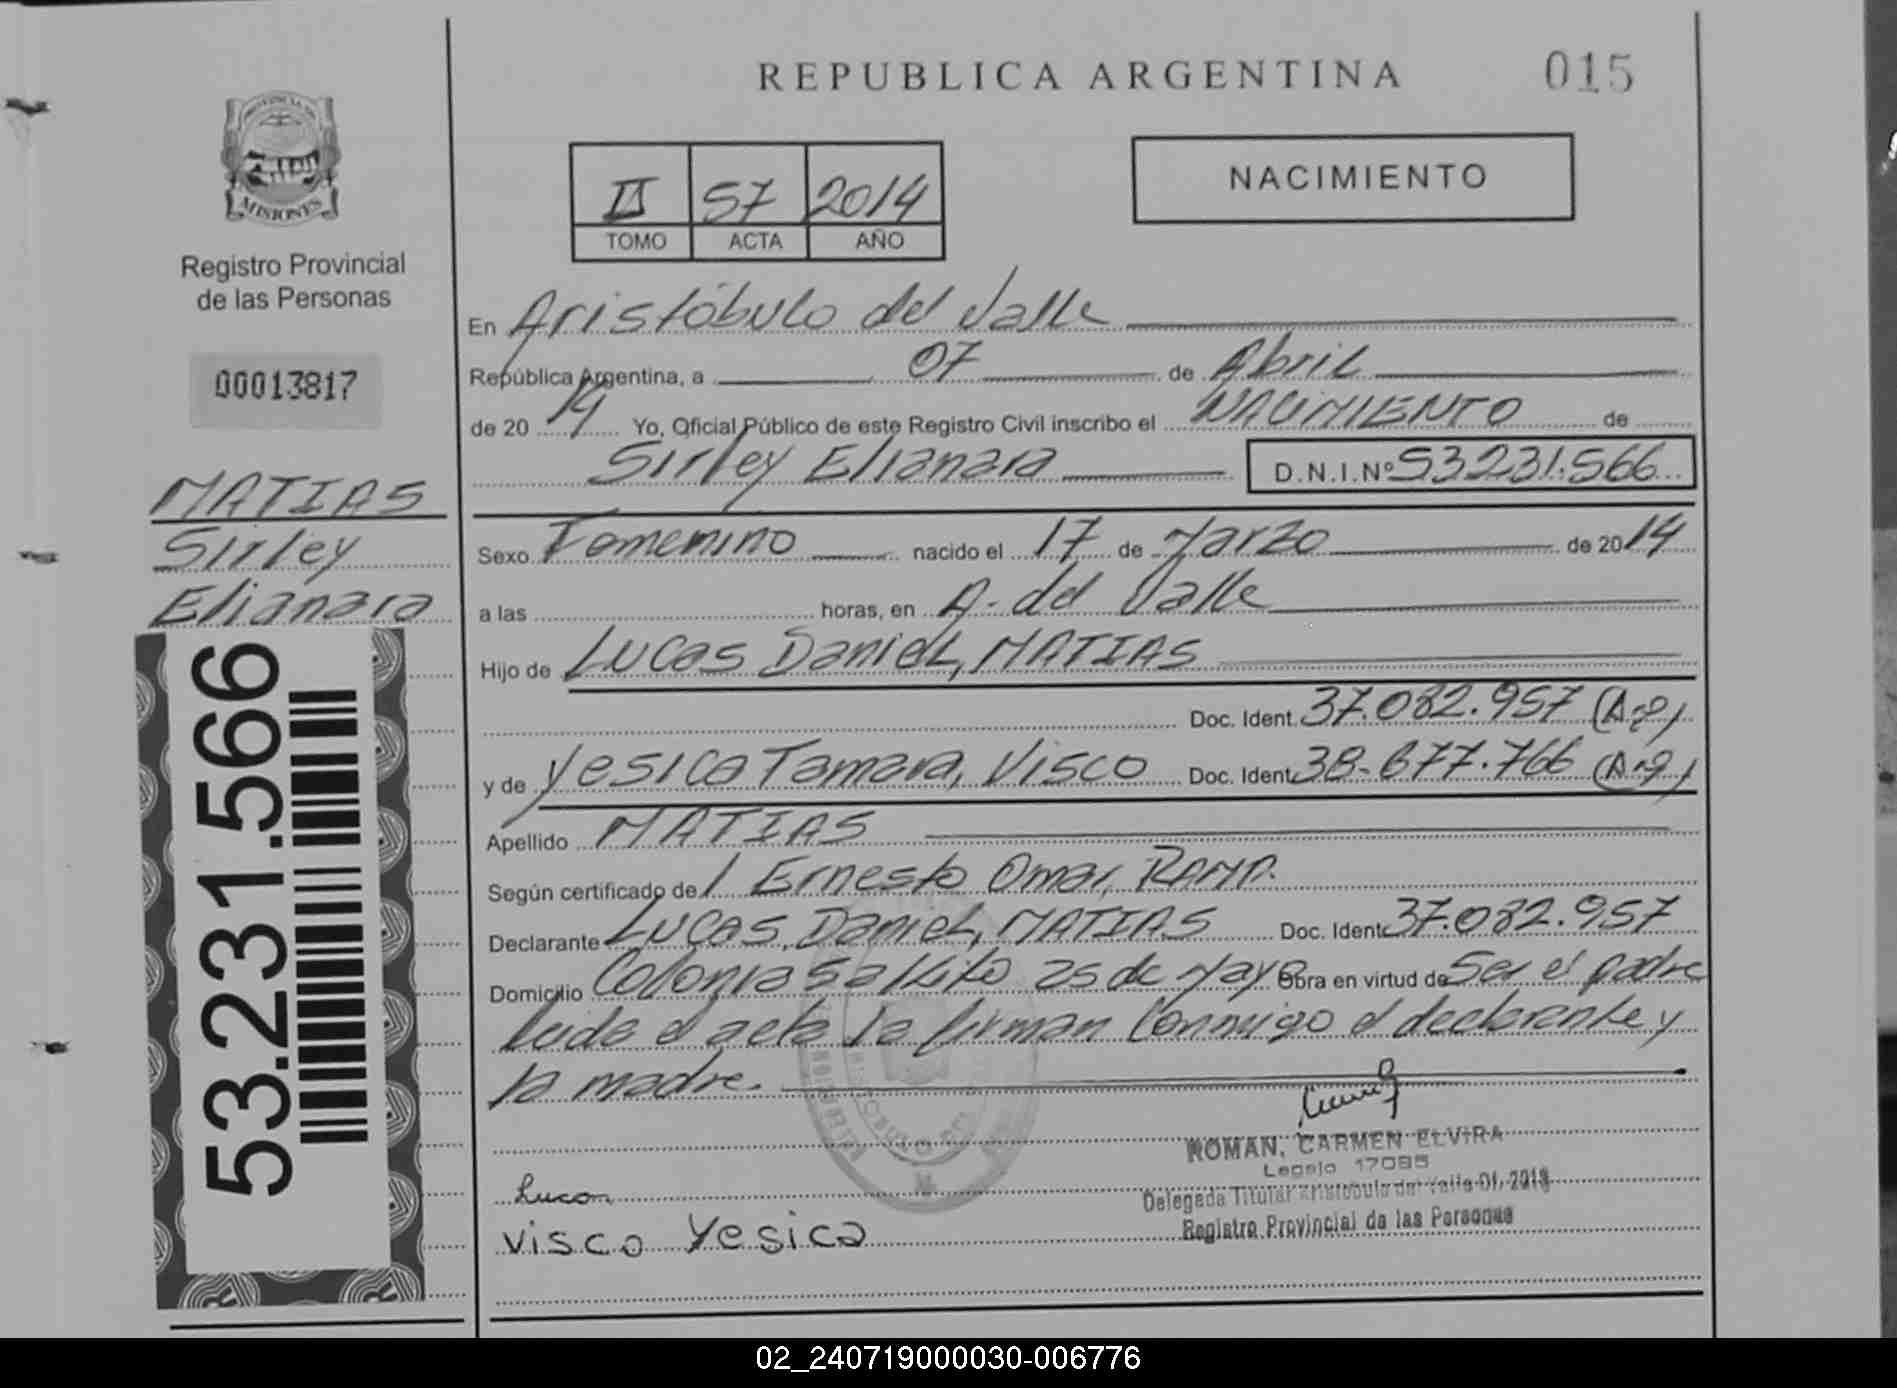 REPUBLICA ARGENTINA
015
PROVINCIA DE
MISIONES
Registro Provincial
de las Personas
00013817
MATIAS
Sirley
Elianara
53.231.566
II 57 2014
TOMO ACTA AÑO
NACIMIENTO
En Aristóbulo del Valle
República Argentina, a 07 de Abril
de 20 14 Yo, Oficial Público de este Registro Civil inscribo el NACIMIENTO de
Sirley Elianara D.N.I.Nº 53231.566
Sexo Femenino nacido el 17 de Marzo de 2014
a las horas, en A. del Valle
Hijo de Lucas Daniel, MATIAS
Doc. Ident. 37.082.957 (A-9)
y de Yesica Tamara, Visco Doc. Ident. 38.677.766 (A-9)
Apellido MATIAS
Según certificado de Ernesto Omar,
Declarante Lucas, Daniel, MATIAS Doc. Ident. 37.082.957
Domicilio Colonia Saltito 25 de Mayo Obra en virtud de Ser el padre
Leida el acta la firman Conmigo el declarante y
la madre.
ROMAN, CARMEN ELVIRA
Legajo 17095
Delegada Titular Aristóbulo del Valle Of. 2018
Registro Provincial de las Personas
Lucas
Visco Yesica
02_240719000030-006776